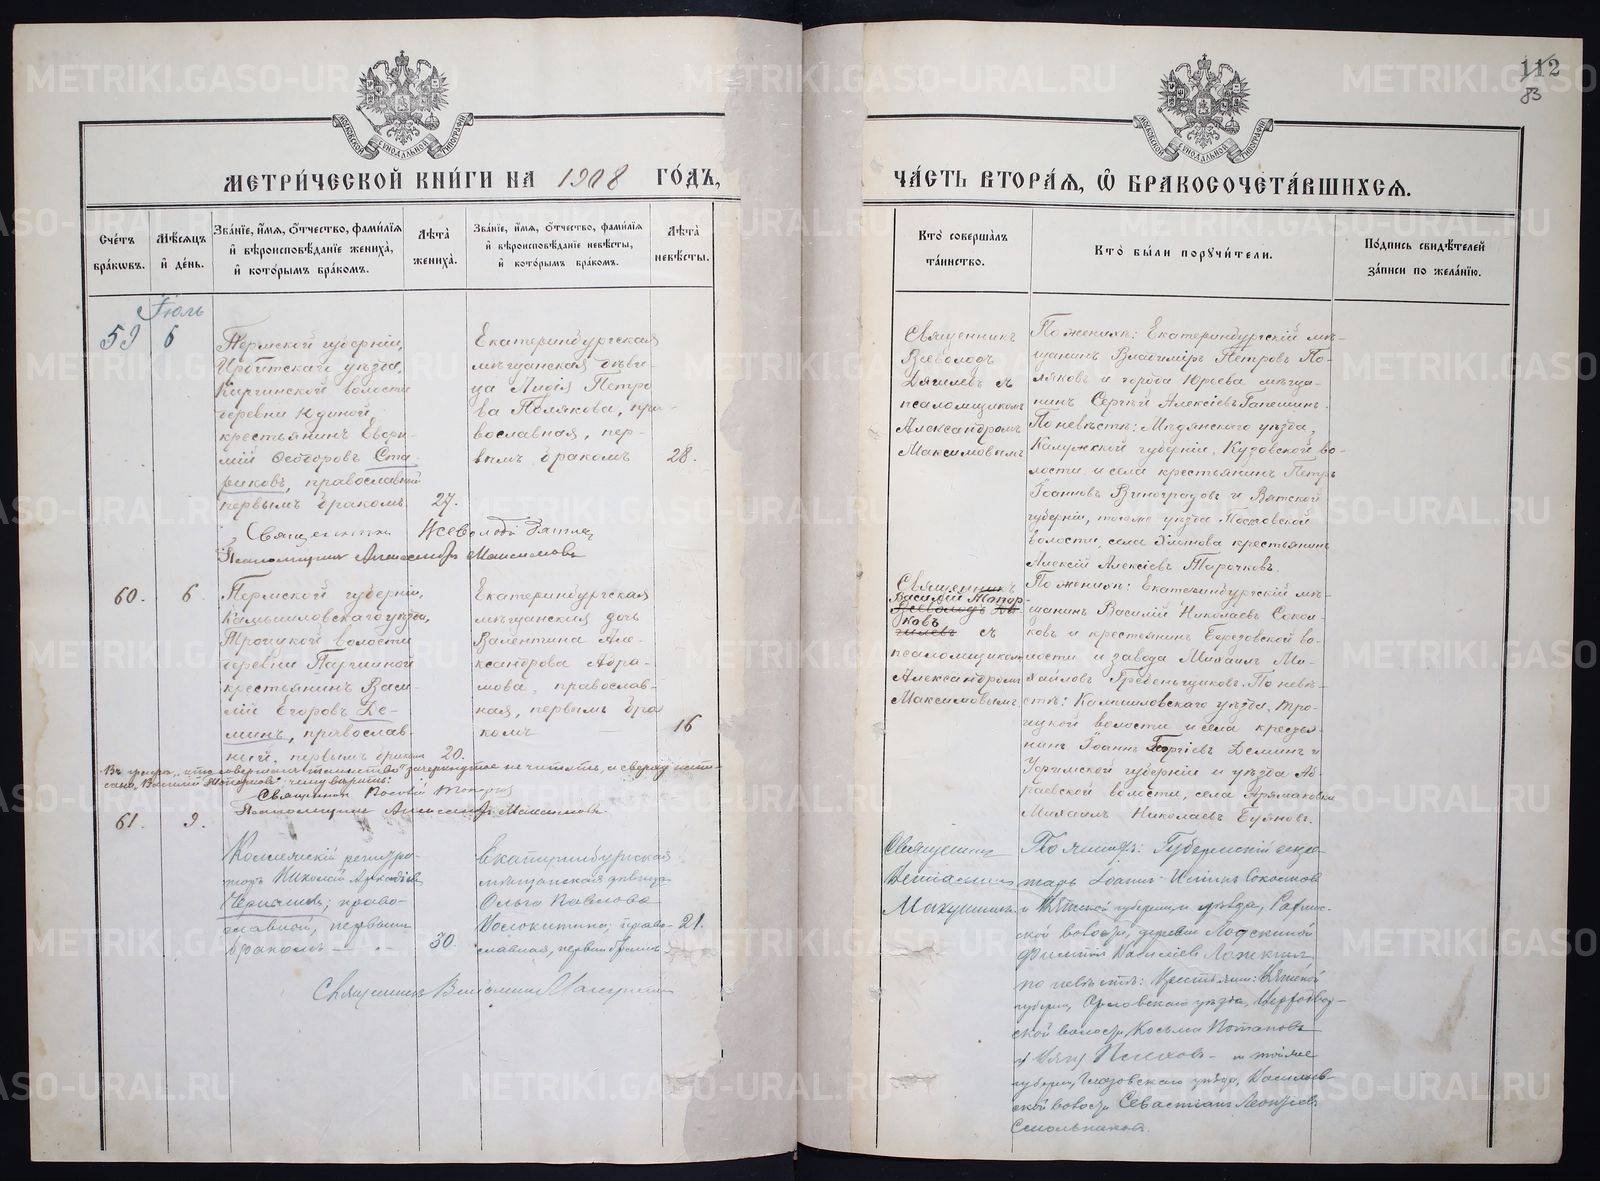 112
83
МЕТРИ́ЧЕСКОЙ КНИ́ГИ НА 1908 ГО́ДЪ,
Сче́тъ бра́кѡвъ.
Мѣ́сяцъ и҆ де́нь.
Зва́нїе, и҆́мя, ѻ҆́тчество, фами́лїя и҆ вѣроисповѣ́данїе жениха̀, и҆ кото́рымъ бра́комъ.
Лѣ́та жениха̀.
Зва́нїе, и҆́мя, ѻ҆́тчество, фами́лїя и҆ вѣроисповѣ́данїе невѣ́сты, и҆ кото́рымъ бра́комъ.
Лѣ́та невѣ́сты.
Іюль
59
6
Пермской губерніи,
Ирбитскаго уѣзда,
Киргинской волости
деревни Юдиной
крестьянинъ Евфи-
мій Ѳеодоровъ Ста-
риковъ, православный
первымъ бракомъ
27.
Екатеринбургская
мѣщанская дѣви-
ца Лидія Петро
ва Полякова, пра-
вославная, пер-
вымъ бракомъ
28.
Священникъ Всеволодъ
Псаломщикъ Александръ Максимовъ
60.
6.
Пермской губерніи,
Камышловскаго уѣзда,
Троицкой волости
деревни
крестьянинъ Васи-
лій Егоровъ Де-
минъ, православ-
ный, первымъ бракомъ
20.
Екатеринбургская
мѣщанская дочь
Валентина Але-
ксандрова Абра-
мова, православ-
ная, первымъ бра
комъ
16
Въ графѣ "кто совершалъ таинство" зачеркнутое не читать, а сверху напи-
сано "Василій Топорковъ" читать.
Священникъ Василій Топорковъ
Псаломщикъ Александръ Максимовъ
61.
9.
Коллежскій регистра-
торъ Николай Аркадіевъ
право-
славный, первымъ
бракомъ
30.
Екатеринбургская
мѣщанская дѣвица
Ольга Павлова
Волокитина, право-
славная, первымъ бракомъ
21.
Священникъ Веніаминъ
ЧА́СТЬ ВТОРА́Я, Ѡ҆ БРАКОСОЧЕТА́ВШИХСЯ.
Кто̀ соверша́лъ та́инство.
Кто̀ бы́ли порꙋчи́тели.
По́дпись свидѣ́телей за́писи по жела́нїю.
Священникъ
Всеволодъ
Дягилевъ съ
псаломщикомъ
Александромъ
Максимовымъ
По женихѣ: Екатеринбургскій мѣ-
щанинъ Владиміръ Петровъ По-
ляковъ и города Юрьева мѣща-
нинъ Сергѣй Алексіевъ Гапешинъ.
По невѣстѣ: Медынскаго уѣзда,
Калужской губерніи, Кузовской во-
лости и села крестьянинъ Петръ
Іоанновъ Виноградовъ и Вятской
губерніи, того же уѣзда
волости, села крестьянинъ
Алексій Алексіевъ Тарочковъ.
Священникъ
Василій Топор-
Всеволодъ Дя-
ковъ
гилевъ съ
псаломщикомъ
Александромъ
Максимовымъ
По женихѣ: Екатеринбургскій мѣ-
щанинъ Василій Николаевъ Сокол-
ковъ и крестьянинъ Березовской во-
лости и завода Михаилъ Ми-
хаиловъ Гребеньщиковъ. По невѣ-
стѣ: Камышловскаго уѣзда, Тро-
ицкой волости и села крестья-
нинъ Іоаннъ Георгіевъ Деминъ и
Уфимской губерніи и уѣзда
волости, села
Михаилъ Николаевъ Буяновъ.
Священникъ
Веніаминъ
По женихѣ: Губернскій секре-
тарь Іоаннъ
и Вятской губерніи и уѣзда,
ской волости, деревни
по невѣстѣ: крестьяне: Вятской
губерніи, Орловскаго уѣзда,
ской волости Косьма Потаповъ
и той же
губерніи, Глазовскаго уѣзда,
ской волости Севастіанъ Леонтіевъ